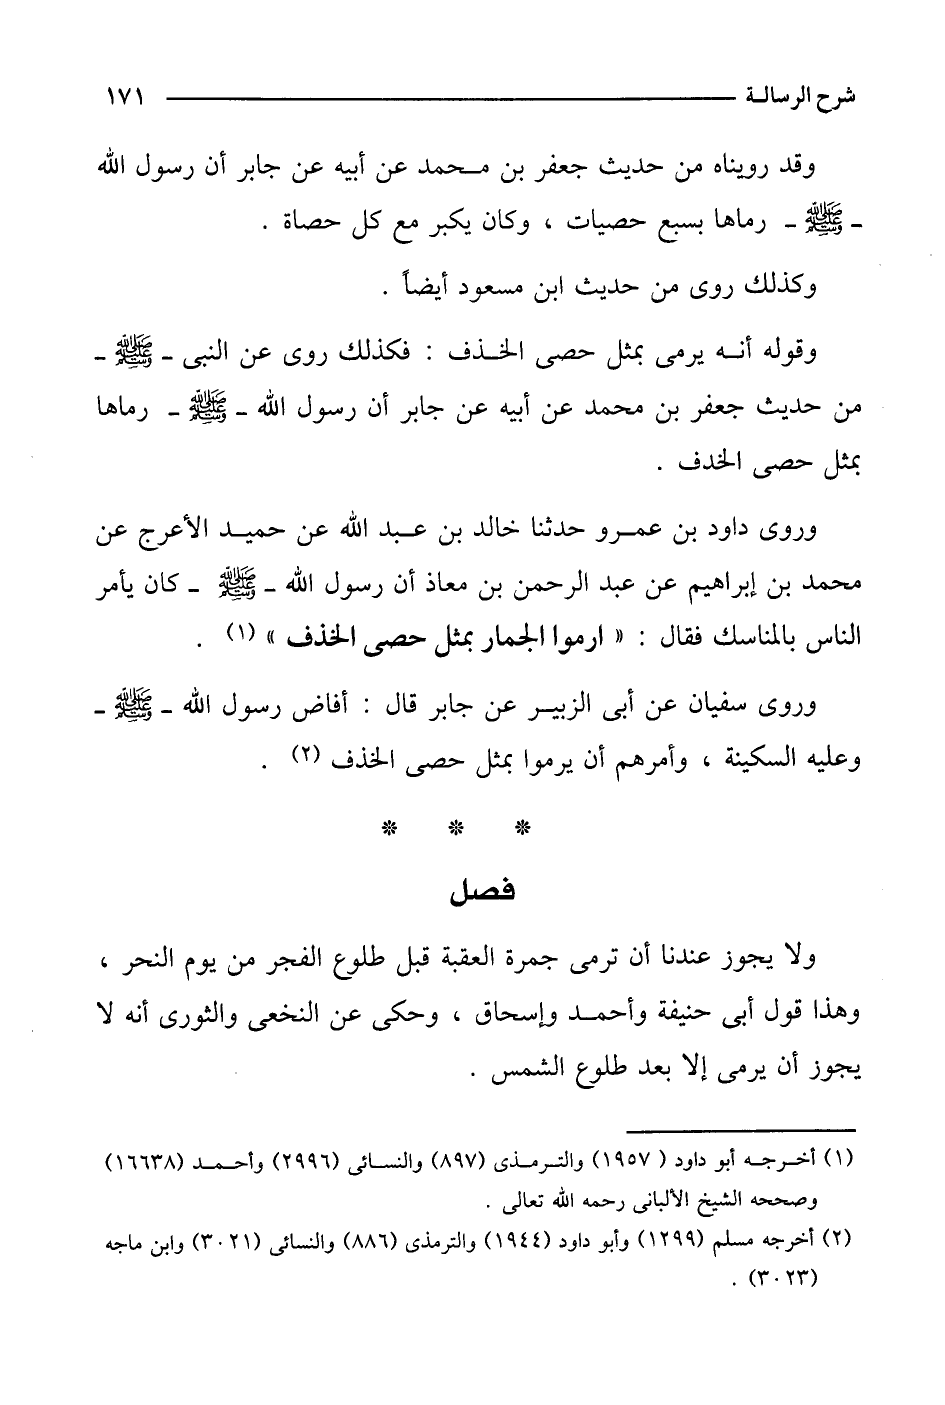 شرح الرسالة ١٧١
وقد رويناه من حديث جعفر بن محمد عن أبيه عن جابر أن رسول الله
ـ ﷺ ـ رماها بسبع حصيات ، وكان يكبر مع كل حصاة .
وكذلك روى من حديث ابن مسعود أيضاً .
وقوله أنه يرمى بمثل حصى الخذف : فكذلك روى عن النبى ـ ﷺ ـ
من حديث جعفر بن محمد عن أبيه عن جابر أن رسول الله ـ ﷺ ـ رماها
بمثل حصى الخدف .
وروى داود بن عمرو حدثنا خالد بن عبد الله عن حميد الأعرج عن
محمد بن إبراهيم عن عبد الرحمن بن معاذ أن رسول الله ـ ﷺ ـ كان يأمر
الناس بالمناسك فقال : « ارموا الجمار بمثل حصى الخذف » (١) .
وروى سفيان عن أبى الزبير عن جابر قال : أفاض رسول الله ـ ﷺ ـ
وعليه السكينة ، وأمرهم أن يرموا بمثل حصى الخذف (٢) .
* * *
فصل
ولا يجوز عندنا أن ترمى جمرة العقبة قبل طلوع الفجر من يوم النحر ،
وهذا قول أبى حنيفة وأحمد وإسحاق ، وحكى عن النخعى والثورى أنه لا
يجوز أن يرمى إلا بعد طلوع الشمس .
(١) أخرجه أبو داود ( ١٩٥٧) والترمذى (٨٩٧) والنسائى (٢٩٩٦) وأحمد (١٦٦٣٨)
وصححه الشيخ الألبانى رحمه الله تعالى .
(٢) أخرجه مسلم (١٢٩٩) وأبو داود (١٩٤٤) والترمذى (٨٨٦) والنسائى (٣٠٢١) وابن ماجه
(٣٠٢٣) .